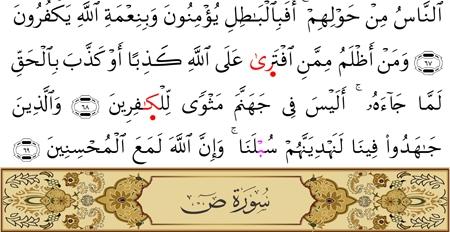 ٱلنَّاسُ مِنْ حَوْلِهِمْ ۚ أَفَبِٱلْبَـٰطِلِ يُؤْمِنُونَ وَبِنِعْمَةِ ٱللَّهِ يَكْفُرُونَ
٦٧ وَمَنْ أَظْلَمُ مِمَّنِ ٱفْتَرَىٰ عَلَى ٱللَّهِ كَذِبًا أَوْ كَذَّبَ بِٱلْحَقِّ
لَمَّا جَآءَهُۥٓ ۚ أَلَيْسَ فِى جَهَنَّمَ مَثْوًى لِّلْكَـٰفِرِينَ ٦٨ وَٱلَّذِينَ
جَـٰهَدُوا۟ فِينَا لَنَهْدِيَنَّهُمْ سُبُلَنَا ۚ وَإِنَّ ٱللَّهَ لَمَعَ ٱلْمُحْسِنِينَ ٦٩
سُورَةُ صٓ